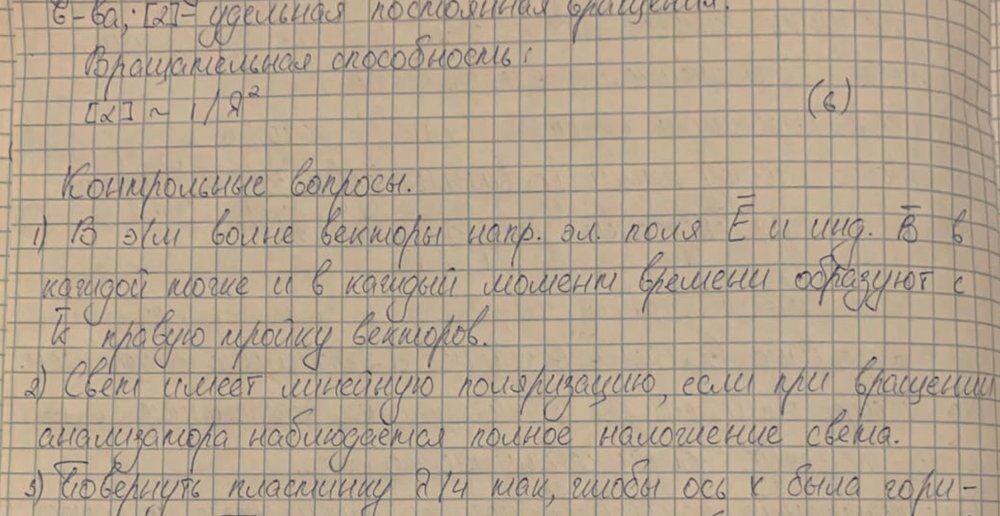 в-ва; [α] - удельная постоянная вращения.
Вращательная способность:
[α] ~ 1/λ² (6)
Контрольные вопросы.
1) В э/м волне векторы напр. эл. поля E̅ и инд. B̅ в
каждой точке и в каждый момент времени образуют с
k̅ правую тройку векторов.
2) Свет имеет линейную поляризацию, если при вращении
анализатора наблюдается полное наложение света.
3) Повернуть пластинку λ/4 так, чтобы ось x была гори-